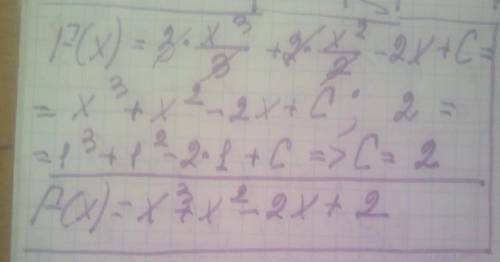 F(x) = 3·x³/3 + 2·x²/2 - 2x + C =
= x³ + x² - 2x + C; 2 =
= 1³ + 1² - 2·1 + C => C = 2
F(x) = x³ + x² - 2x + 2